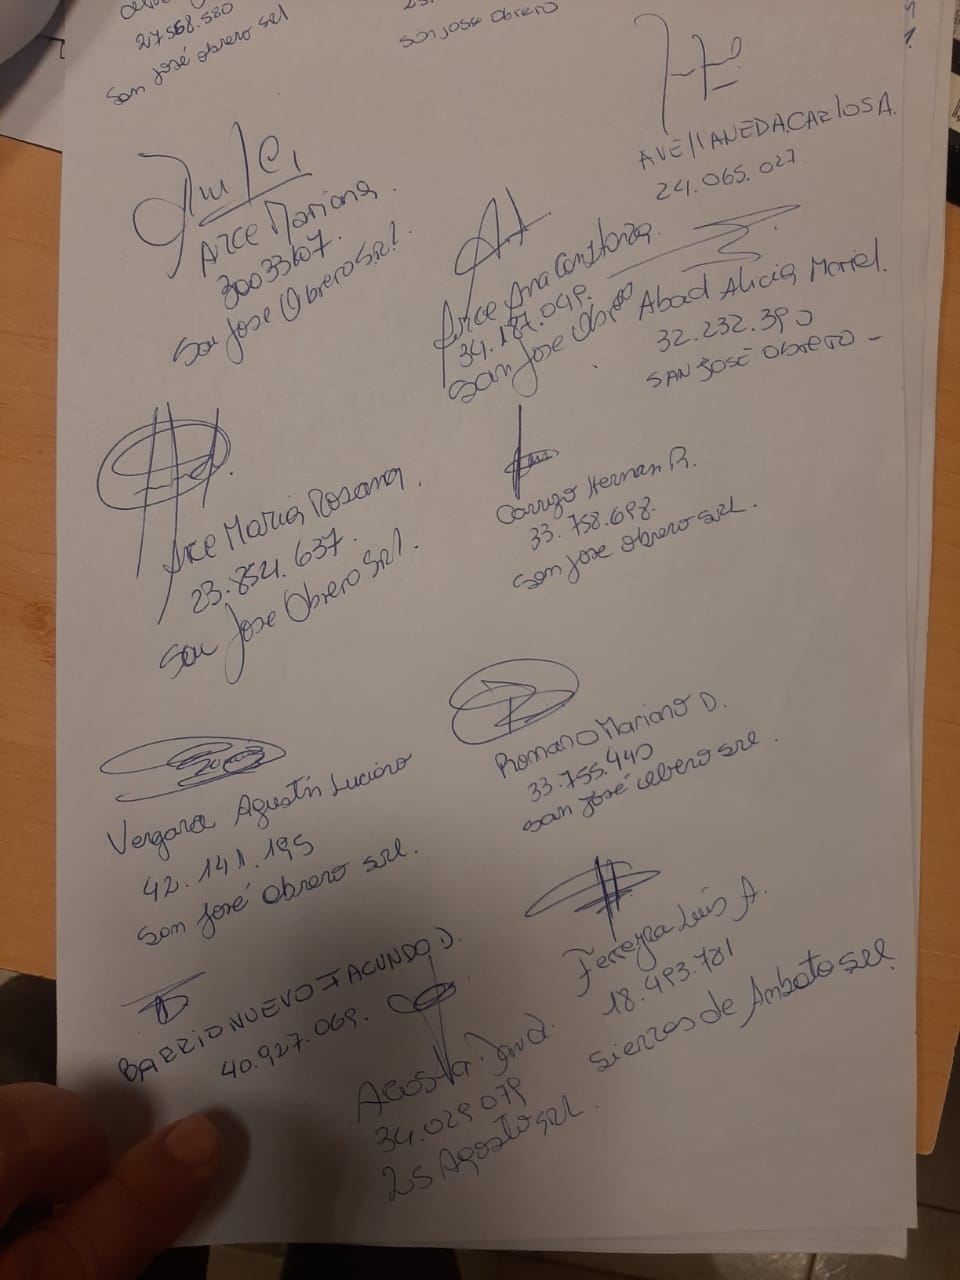 27.568.580
San José obrero srl
San jose obrero
AVEllANEDA CARlOS A.
24.065.027
Arce Mariana.
30033607.
San Jose Obrero Srl.
Arce Ana Constanza.
34.187.049.
San Jose Obrero
Abad Alicia Mariel.
32.232.390
SAN JOSÉ Obrero -
Arce Maria Rosana.
23.854.637.
San Jose Obrero Srl.
Carrizo Hernan R.
33.758.698.
San jose obrero srl.
Vergara Agustín Luciano
42.141.195
San José Obrero srl.
Romano Mariano D.
33.755.440
San José obrero srl.
BARRIONUEVO FACUNDO D.
40.927.069.
Ferreyra Luis A.
18.493.781
Sierras de Ambato srl.
Acosta
34.029079
25 Agosto srl.